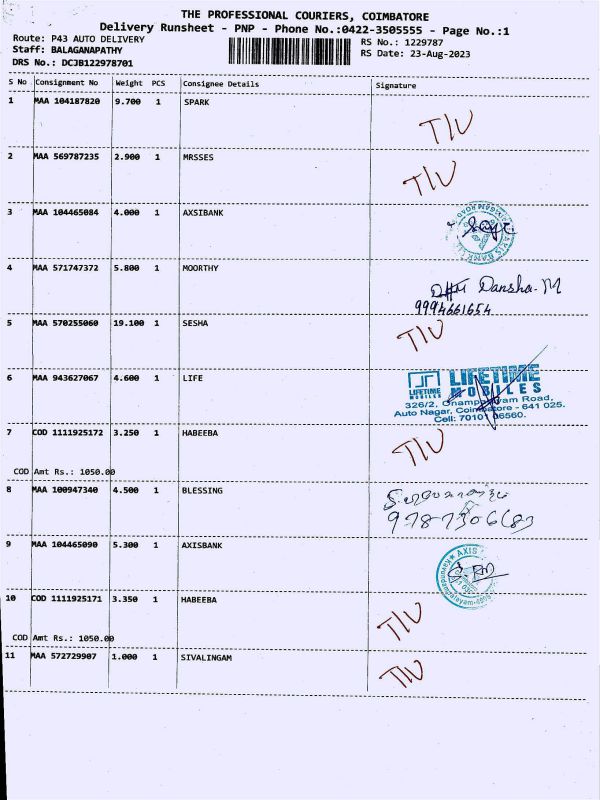 THE PROFESSIONAL COURIERS, COIMBATORE
Delivery Runsheet - PNP - Phone No.:0422-3505555 - Page No.:1
Route: P43 AUTO DELIVERY
RS No.: 1229787
Staff: BALAGANAPATHY
RS Date: 23-Aug-2023
DRS No.: DCJB122978701
S No Consignment No Weight PCS Consignee Details Signature
1 MAA 104187820 9.700 1 SPARK
T/U
2 MAA 569787235 2.900 1 MRSSES
T/U
3 MAA 104465084 4.000 1 AXSIBANK
4 MAA 571747372 5.800 1 MOORTHY
Dansha.M
9994661654
5 MAA 570255060 19.100 1 SESHA
T/U
6 MAA 943627067 4.600 1 LIFE
LIFETIME
MOBILES
LIFETIME
MOBILES
326/2, Road,
Auto Nagar, Coimbatore - 641 025.
Cell: 70101 06560.
7 COD 1111925172 3.250 1 HABEEBA
T/U
COD Amt Rs.: 1050.00
8 MAA 100947340 4.500 1 BLESSING
9 MAA 104465090 5.300 1 AXISBANK
AXIS
10 COD 1111925171 3.350 1 HABEEBA
T/U
COD Amt Rs.: 1050.00
11 MAA 572729907 1.000 1 SIVALINGAM
T/U